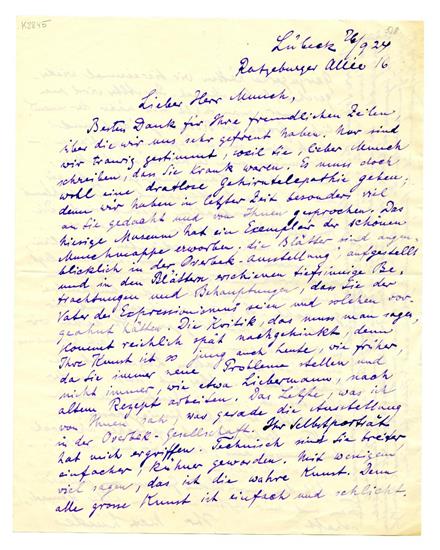 K2845
Lübeck 26/9 24
Ratzeburger Allee 16
Lieber Herr Munch,
Besten Dank für Ihre freundlichen Zeilen,
über die wir uns sehr gefreut haben. Nur sind
wir traurig gestimmt, weil Sie, lieber Munch
schreiben, dass Sie krank waren. Es muss doch
wohl eine dratlose Gehirntelepathie geben,
denn wir haben in letzter Zeit besonders viel
an Sie gedacht und von Ihnen gesprochen. Das
hiesige Museum hat ein Exemplar der schönen
Munchmappe erworben, die Blätter sind augen-
blicklich in der Overbek-Ausstellung, aufgestellt
und in den Blättern erschienen tiefsinnige Be-
trachtungen und Behauptungen, dass Sie der
Vater des Expressionismus seien und solchen vor-
geahnt hätten. Die Kritik, das muss man sagen,
kommt reichlich spät nachgehinkt, denn
Ihre Kunst ist so jung auch heute, wie früher,
da Sie immer neue Probleme stellen und
nicht immer, wie etwa Liebermann, nach
altem Rezept arbeiten. Das Letzte, was ich
von Ihnen sah, was gerade die Ausstellung
in der Overbek-Gesellschaft. Ihr Selbstporträt
hat mich ergriffen. Technisch sind Sie breiter
einfacher kühner geworden. Mit wenigem
viel sagen, das ist die wahre Kunst. Denn
alle grosse Kunst ist einfach und schlicht.